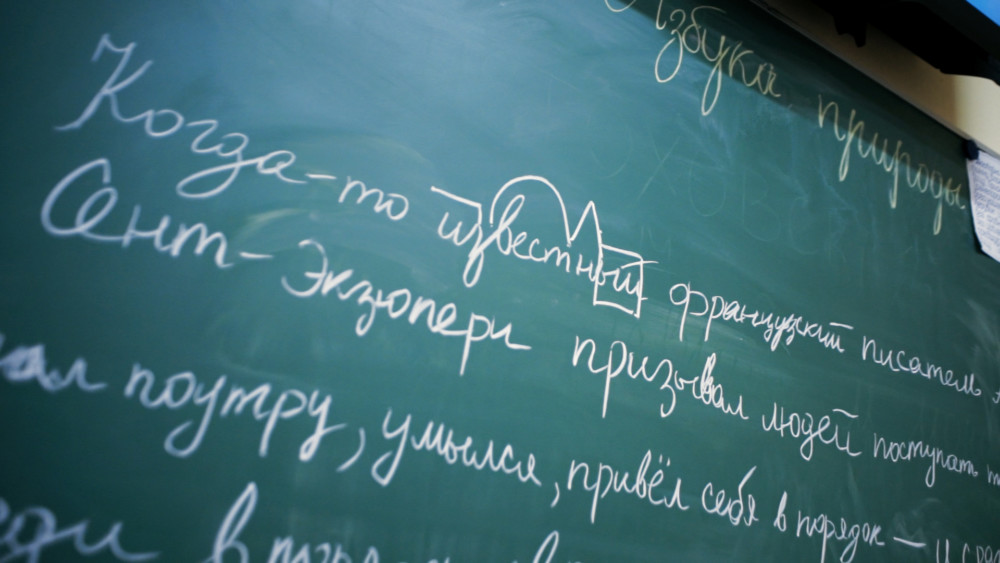 Азбука природы
Когда-то известный французский писатель
Сент-Экзюпери призывал людей поступать
поутру, умылся, привёл себя в порядок — и
в